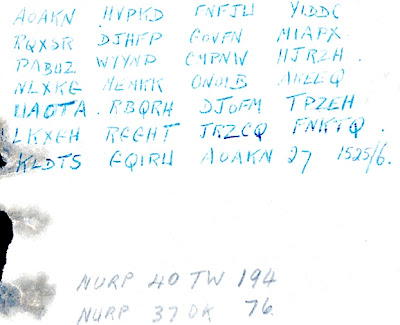 AOAKN HVPKD FNFJU YIDDC
RQXSR DJHFP GOVFN MIAPX
PABUZ WYYNP CMPNW HJRZH
NLXKG MEMKK ONOIB AKEEQ
UAOTA RBQRH DJOFM TPZEH
LKXGH RGGHT JRZCQ FNKTQ
KLDTS GQIRU AOAKN 27 1525/6.
NURP 40 TW 194
NURP 37 DK 76